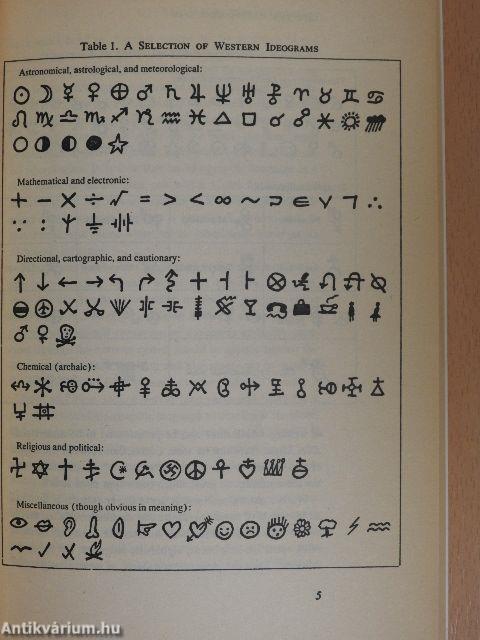 Table I. A Selection of Western Ideograms
Astronomical, astrological, and meteorological:
Mathematical and electronic:
+ − × ÷ √ = > < ∞ ~ ⊃ ∈ ∨ ¬ ∴
∵ :
Directional, cartographic, and cautionary:
Chemical (archaic):
Religious and political:
Miscellaneous (though obvious in meaning):
5
Antikvárium.hu